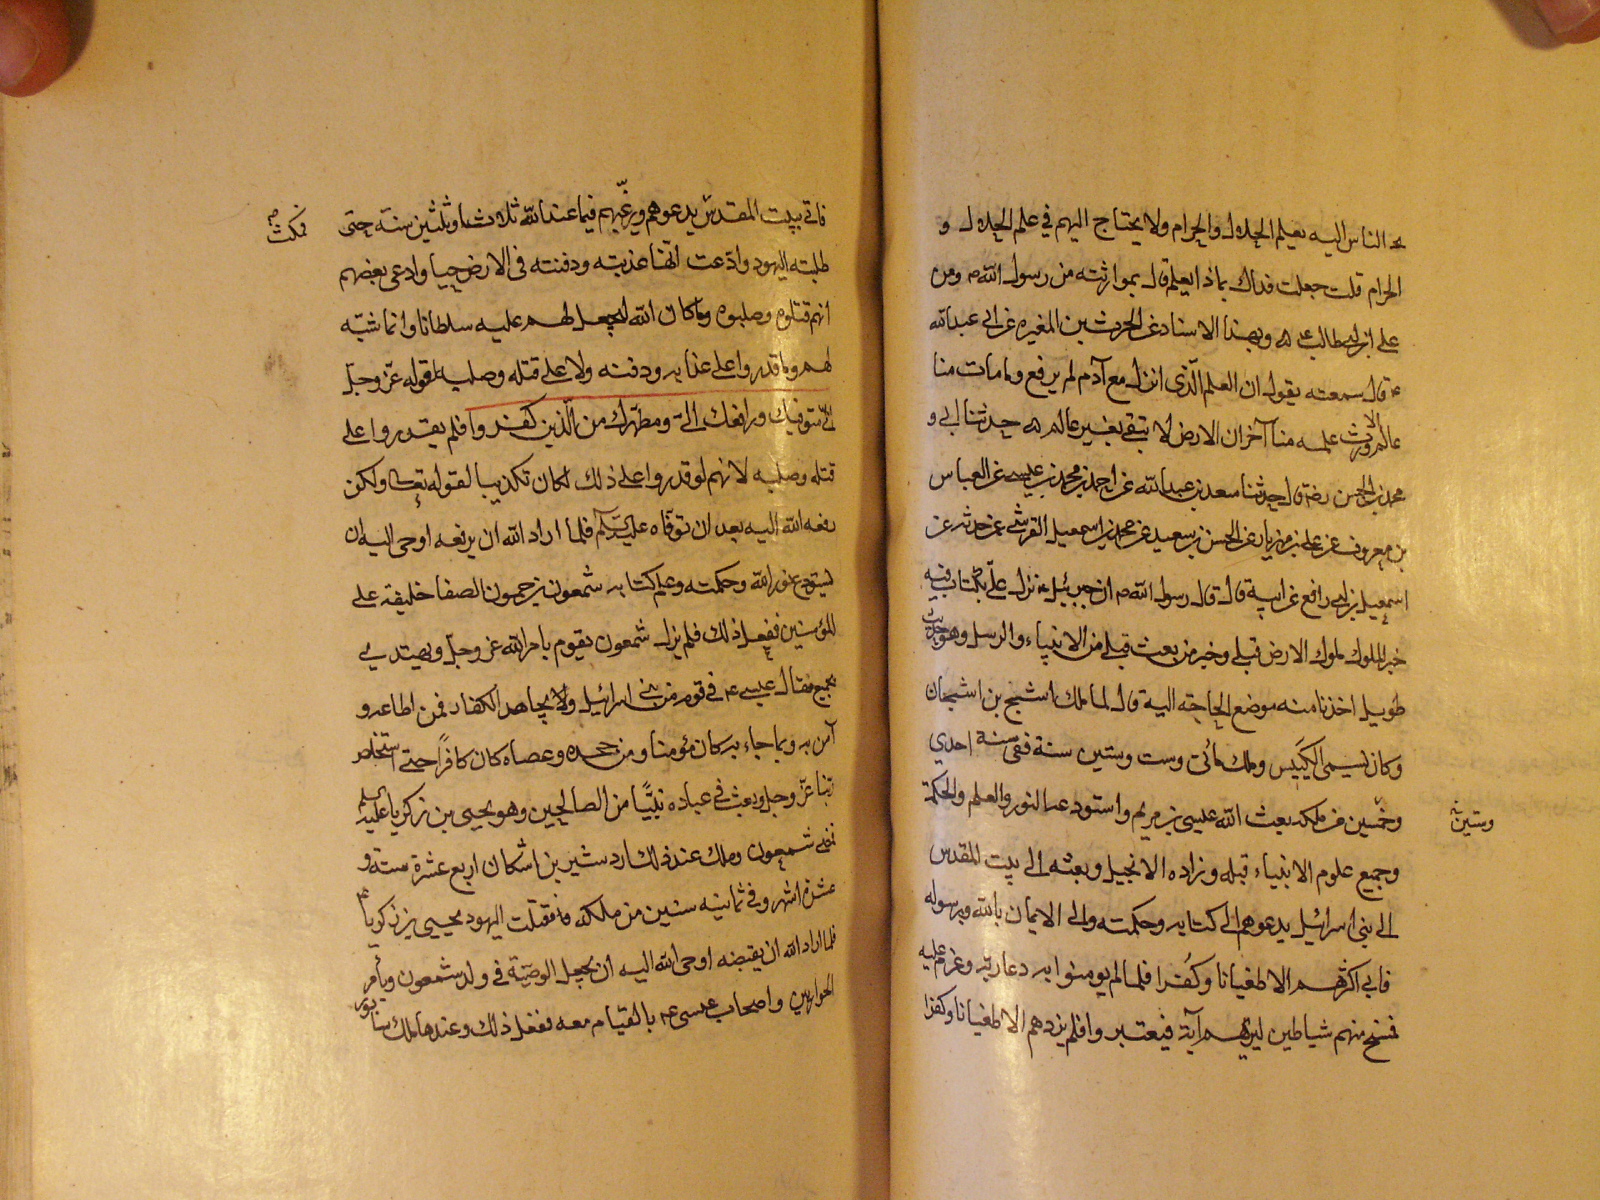 الناس اليه يعلم الحلال والحرام ولا يحتاج اليهم في علم الحلال و
الحرام قلت جعلت فداك بماذا يعلم قال بمواريثه من رسول الله ص ومن
على ابن ابى طالب ع ه وبهذا الاسناد عن الحرث بن المغيره عن ابى عبدالله
ع قال سمعته يقول ان العلم الّذى انزل مع آدم لم يرفع وما مات منا
عالم الا ورث علمه منا آخر ان الارض لا تبقى بغير عالم ه حدثنا ابى و
محمد بن الحسن رضه قال حدثنا سعد بن عبدالله عن احمد بن محمد بن عيسى عن العباس
بن معروف عن على بن مهزيار عن الحسن بن سعيد عن محمد بن اسمعيل القرشى عمن حدثه عن
اسمعيل بن ابى رافع عن ابيه قال قال رسول الله ص ان جبرئيل ع نزل علىّ بكتاب فيه
خبر الملوك ملوك الارض قبلى وخبر من بعث قبلى من الانبياء والرسل وهو حديث
طويل اخذنا منه موضع الحاجة اليه قال لما ملك اشبح بن اشجان
وكان يسمى الكيّس وملك مأتى وست وستين سنة ففى سنة احدى
وخمسين من ملكه بعث الله عيسى بن مريم واستودعه النور والعلم والحكمة
وستين
وجميع علوم الانبياء قبله وزاده الانجيل وبعثه الى بيت المقدس
الى بنى اسرائيل يدعوهم الى كتابه وحكمته والى الايمان بالله وبرسوله
فابى اكثرهم الا طغيانا وكفرا فلما لم يومنوا به دعا ربّه وعزم عليه
فمسخ منهم شياطين ليريهم آية فيعتبروا فلم يزدهم الا طغيانا وكفرا
فاتى بيت المقدس يدعوهم ويرغّبهم فيما عند الله ثلاثا وثلثين سنة حتى
فمكث
طلبته اليهود وادّعت انّها عذبته ودفنته فى الارض حيا وادعى بعضهم
انهم قتلوه وصلبوه وما كان الله ليجعل لهم عليه سلطانا وانما شبّه
لهم وما قدروا على عذابه ودفنه ولا على قتله وصلبه لقوله عزّ وجلّ
انّى متوفيك ورافعك الىّ ومطهّرك من الّذين كفروا فلم يقدروا على
قتله وصلبه لانهم لو قدروا على ذلك لكان تكذيبا لقوله تعالى ولكن
رفعه الله اليه بعد ان توفاه عليه السّلم فلما اراد الله ان يرفعه اوحى اليه ان
يستودع نور الله وحكمته وعلم كتابه شمعون بن حمون الصفا خليفته على
المؤمنين ففعل ذلك فلم يزل شمعون يقوم بامر الله عز وجلّ ويهتدى
بجميع مقال عيسى ع فى قومه من بنى اسرائيل ويجاهد الكفار فمن اطاعه و
آمن به وبما جاء به كان مؤمنا ومن جحده وعصاه كان كافرًا حتى استخلص
ربّنا عزّ وجل وبعث فى عباده نبيًّا من الصالحين وهو يحيى بن زكريا عليه السلم
فمضى شمعون وملك عند ذلك اردشير بن اشكان اربع عشرة سنة و
عشرة اشهر وفى ثمانيه سنين من ملكه قتلت اليهود يحيى بن زكريا ع
فلما اراد الله ان يقبضه اوحى الله اليه ان يجعل الوصيّة فى ولد شمعون ويأمر
الحواريين واصحاب عيسى ع بالقيام معه ففعل ذلك وعندها ملك سابور